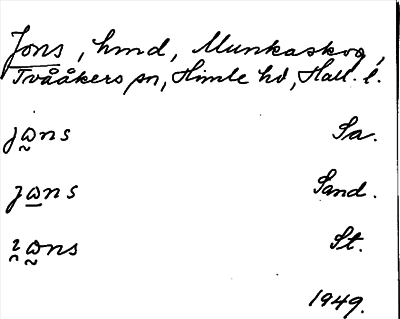 Jons, hmd, Munkaskog,
Tvååkers sn, Himle hd, Hall. l.
jω̰ns Sa.
jω̲ns Sand.
ı̯ω̰ns St.
1949.